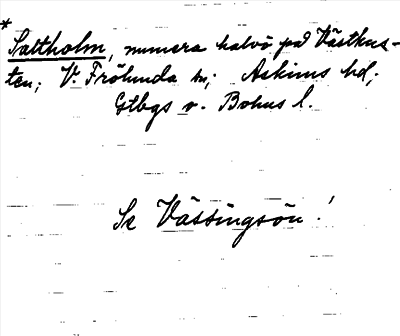 * Saltholm, numera halvö på Västkus-
ten; V. Frölunda sn; Askims hd;
Gtbgs o. Bohus l.
Se Vässingsön!